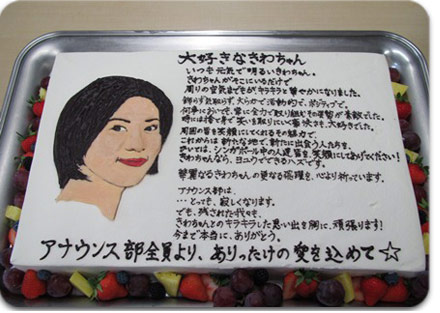 大好きなきわちゃん
いつも元気で明るいきわちゃん。
きわちゃんがそこにいるだけで
周りの空気までもがキラキラと華やかになりました。
飾らず気取らず、大らかで活動的で、ポジティブで。
何事においても、常に全力で取り組むその姿勢が素敵でした。
時には捨て身で笑いを取りにいく豪快さも、大好きでした。
周囲の皆を笑顔にしてくれるその魅力で、
これからは新たな地で、新たに出会う人たちを、
シンガポール中の人達皆を、笑顔にしてあげてください!
きわちゃんなら、ヨユウでできるハズです。
華麗なるきわちゃんの更なる活躍を、心より祈っています。
アナウンス部は、
…とっても、寂しくなります。
でも、残された我々も、
きわちゃんとのキラキラした思い出を胸に、頑張ります!
今まで本当に、ありがとう。
アナウンス部全員より、ありったけの愛を込めて☆